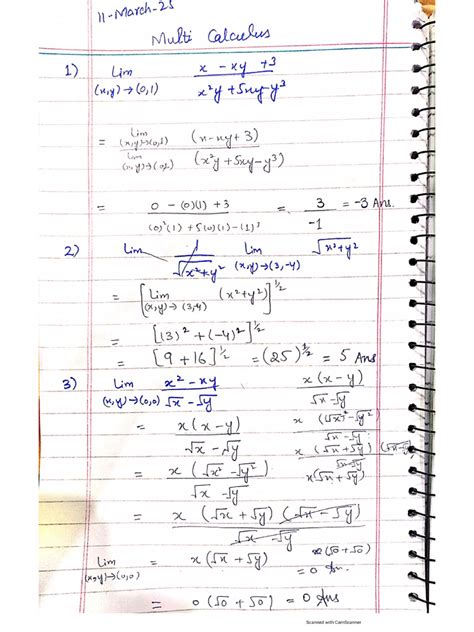 11-March-25
Multi Calculus
1) Lim (x,y)→(0,1) x - xy + 3 / x²y + 5xy - y³
= Lim (x,y)→(0,1) (x - xy + 3) / Lim (x,y)→(0,1) (x²y + 5xy - y³)
= 0 - (0)(1) + 3 / (0)²(1) + 5(0)(1) - (1)³ = 3 / -1 = -3 Ans.
2) Lim 1 / √x²+y² Lim (x,y)→(3,-4) √x²+y²
= [Lim (x,y)→(3,-4) (x²+y²)]^1/2
= [(3)² + (-4)²]^1/2
= [9 + 16]^1/2 = (25)^1/2 = 5 Ans
3) Lim (x,y)→(0,0) x² - xy / √x - √y x(x - y) / √x - √y
= x(x - y) / √x - √y x(√x² - √y²) / √x - √y
= x(√x² - √y²) / √x - √y x(√x + √y)(√x - √y) / √x - √y
x(√x + √y)
= x(√x + √y)(√x - √y) / √x - √y
Lim (x,y)→(0,0) = x(√x + √y) (√0 + √0)
= 0 An.
= 0(√0 + √0) = 0 Ans
Scanned with CamScanner